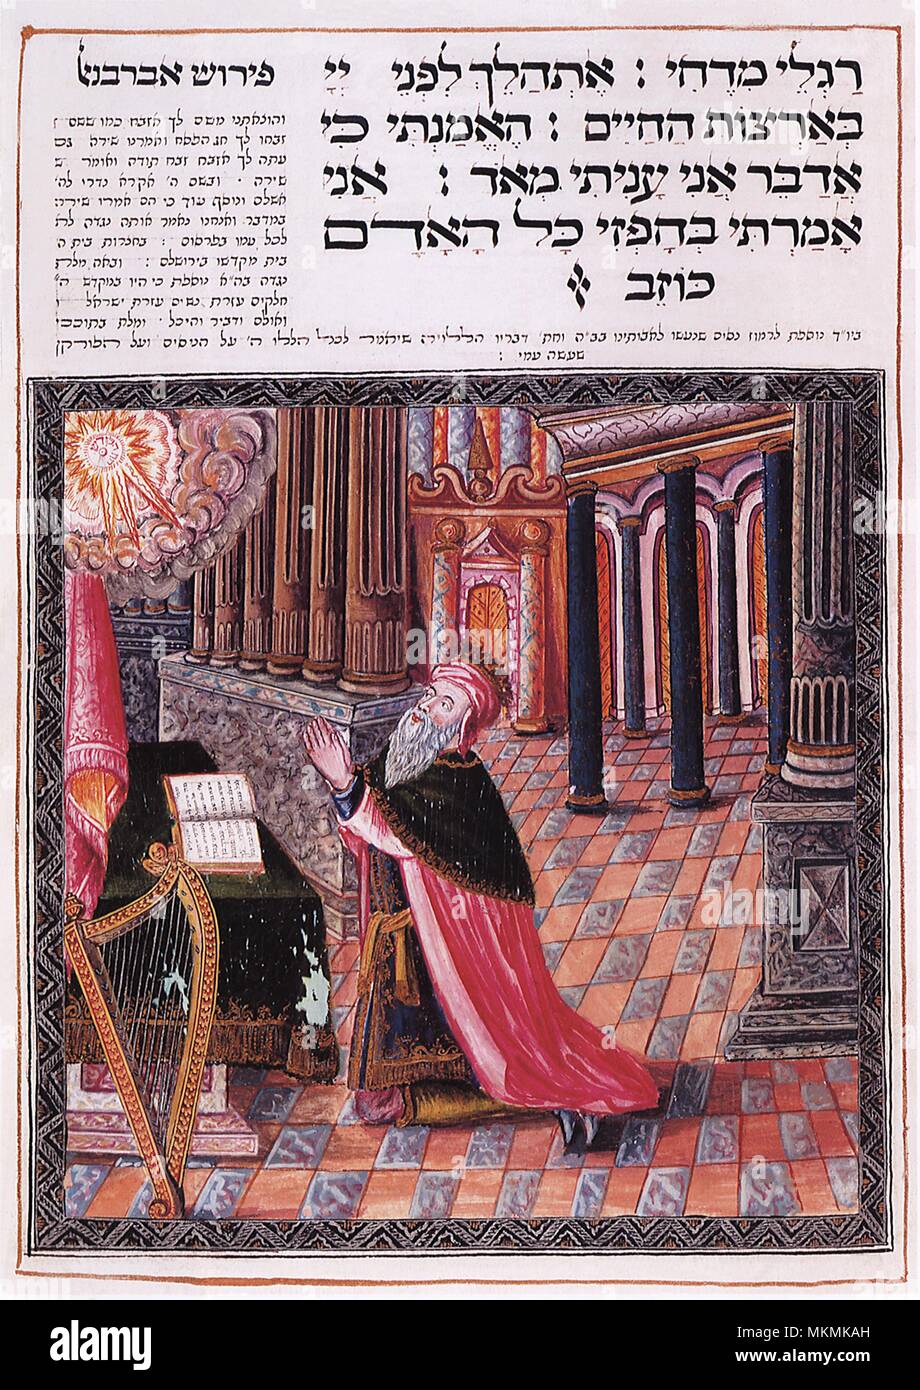 רַגְלִי מִדֶּחִי : אֶתְהַלֵּךְ לִפְנֵי יְיָ
בְּאַרְצוֹת הַחַיִּים : הֶאֱמַנְתִּי כִּי
אֲדַבֵּר אֲנִי עָנִיתִי מְאֹד : אֲנִי
אָמַרְתִּי בְחָפְזִי כָּל הָאָדָם
כּוֹזֵב
פירוש אברבנאל
לך אזבח כמו
זבחו לך הפסח ואמרנו שירה
עתה לך אזבח זבח תודה ואומר
שירה · ובשם ה' אקרא נדרי לה'
אשלם ונוסף עוד כי הם אמרו שירה
במדבר ואנחנו נאמר אותה נגדה לה
לכל עמו בפרסום : בחצרות בית ה'
בית מקדשו בירושלם : ובאה מלת
נגדה בה"א נוספת כי היו במקדש ה'
חלקים עזרת נשים עזרת ישראל
ואולם ודביר והיכל · ומלת בתוככי
ביו"ד נוספת לרמוז נסים שנעשו לאבותינו בב"ה וחת' דבריו הללויה שיאמר לכל הללו ה' על הנסים ועל הפורקן
שעשה עמי :
alamy
Image ID: MKMKAH
www.alamy.com